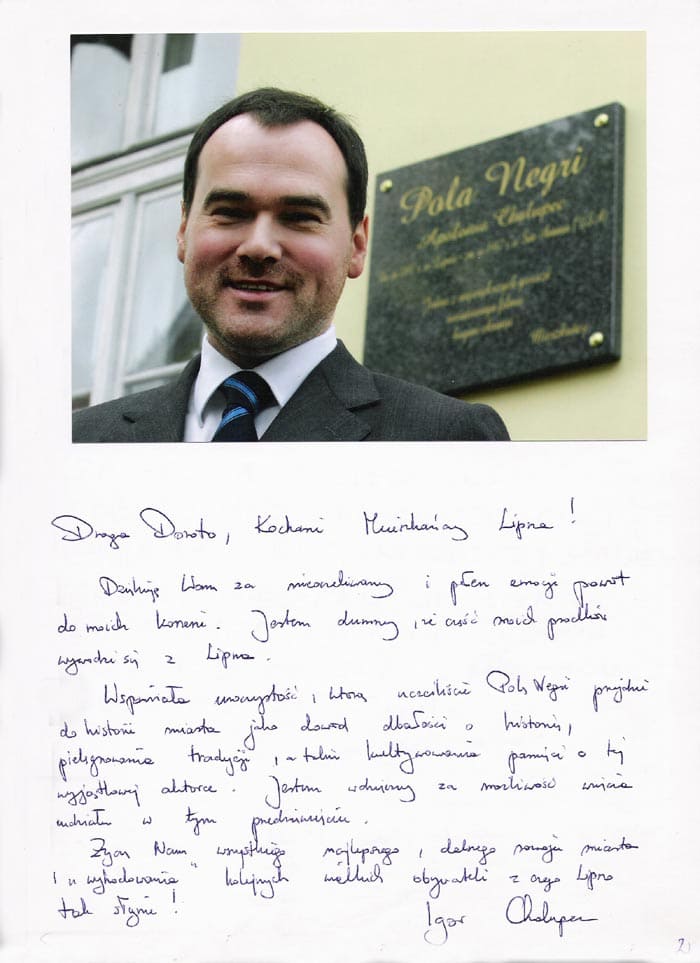 Pola Negri
Apolonia Chałupec
Droga Doroto, Kochani Mieszkańcy Lipna!
Dziękuję Wam za nieoczekiwany i pełen emocji powrót
do moich korzeni. Jestem dumny, że część moich przodków
wywodzi się z Lipna.
Wspaniała uroczystość, którą uczciliście Polę Negri przejdzie
do historii miasta jako dowód dbałości o historię,
pielęgnowania tradycji, a także kultywowania pamięci o tej
wyjątkowej aktorce. Jestem wdzięczny za możliwość wzięcia
udziału w tym przedsięwzięciu.
Życzę Wam wszystkiego najlepszego, dalszego rozwoju miasta
i "wyhodowania" kolejnych wielkich obywateli z czego Lipno
tak słynie!
Igor Chalupec